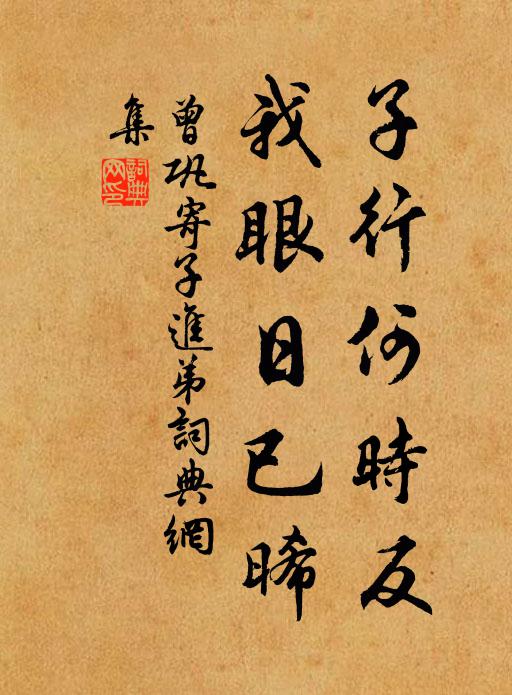 子行何時反
我眼日已晞
曾巩寄子進弟詞典網
集
詞典
网印